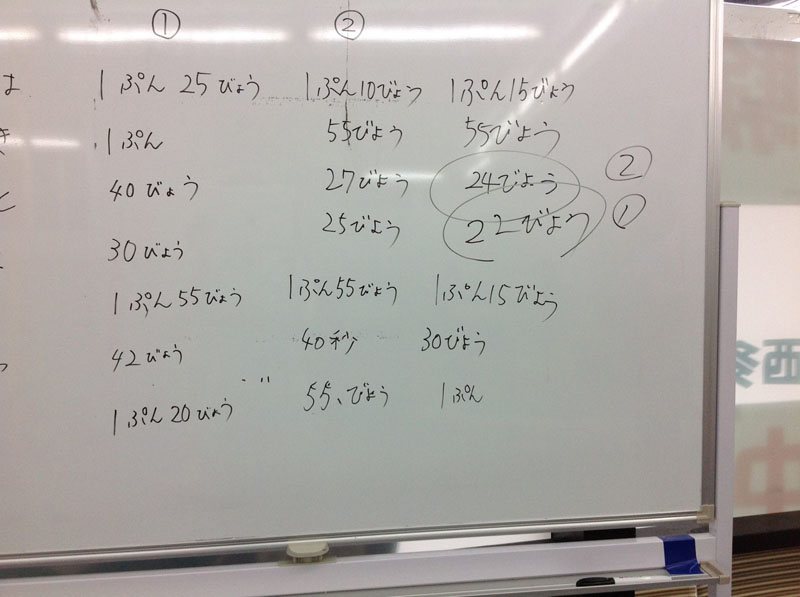 ① ②
1ぷん25びょう 1ぷん10びょう 1ぷん15びょう
1ぷん 55びょう 55びょう
40びょう 27びょう 24びょう ②
30びょう 25びょう 22びょう ①
1ぷん55びょう 1ぷん55びょう 1ぷん15びょう
42びょう 40秒 30びょう
1ぷん20びょう 55、びょう 1ぷん